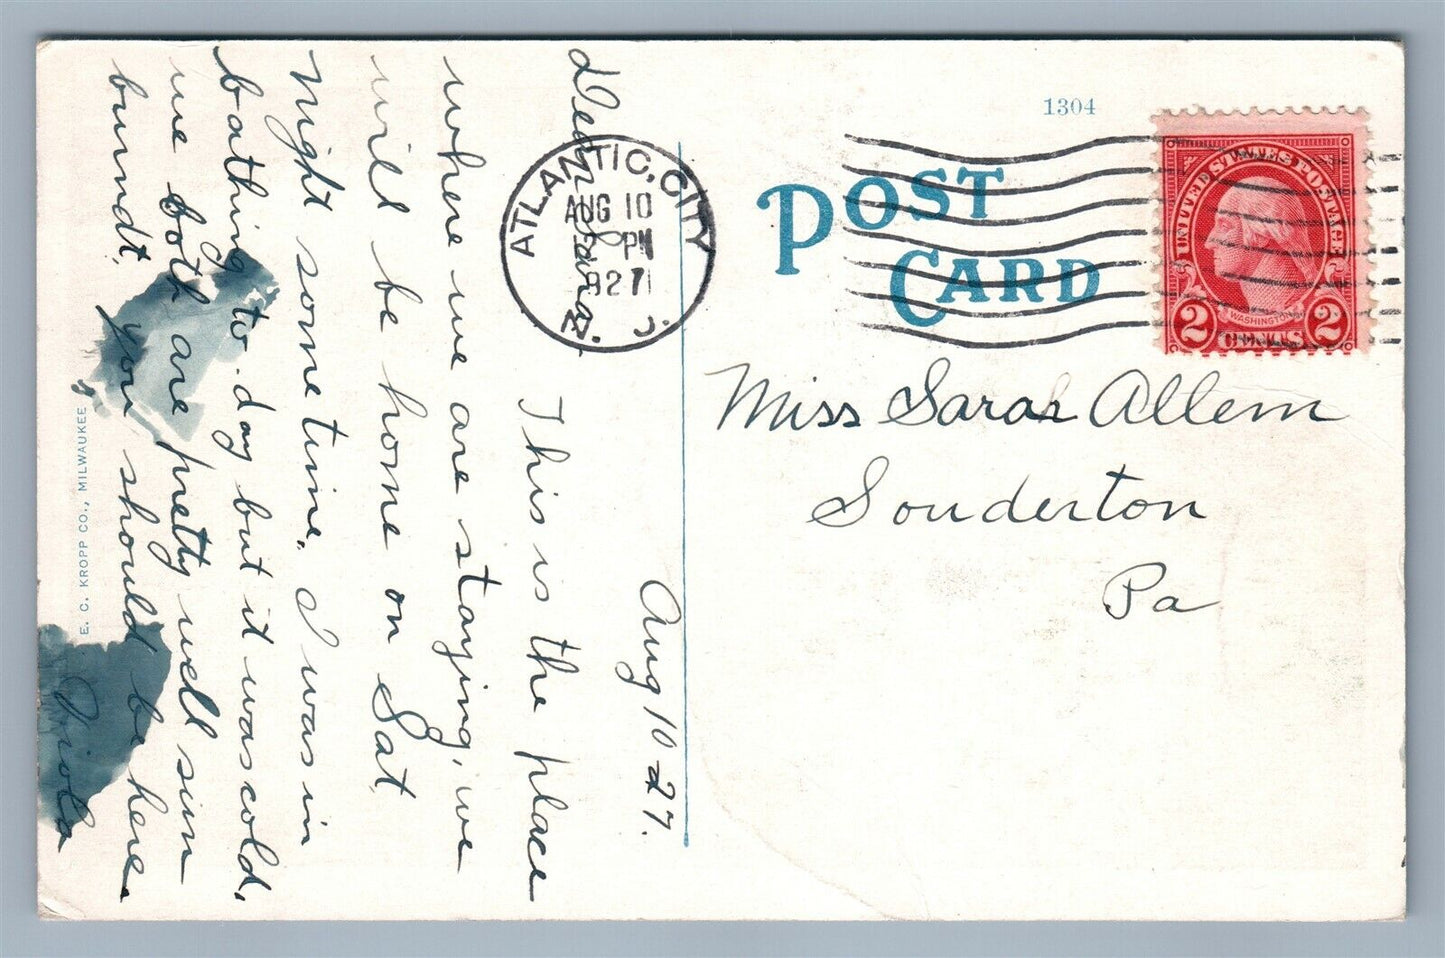 1304
POST
CARD
ATLANTIC, CITY
AUG 10
12 PM
1927
N. J.
UNITED STATES POSTAGE
WASHINGTON
2 CENTS 2
Miss Sarah Allem
Souderton
Pa
Aug 10-27.
Dear
This is the place
where we are staying, we
will be home on Sat
night some time. I was in
bathing to-day but it was cold,
we both are pretty well sun
burndt, you should be here
Viola
E. C. KROPP CO., MILWAUKEE